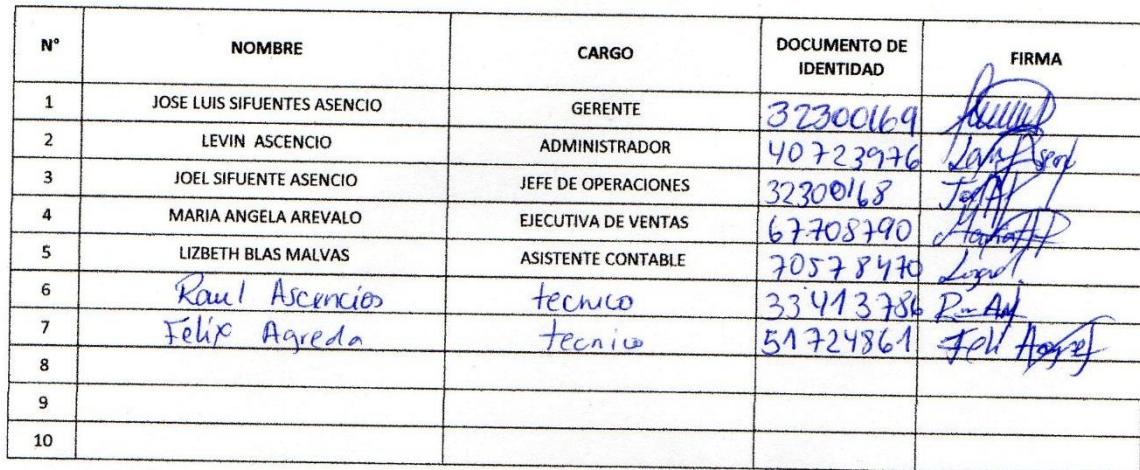 N° NOMBRE CARGO DOCUMENTO DE IDENTIDAD FIRMA
1 JOSE LUIS SIFUENTES ASENCIO GERENTE 32300169
2 LEVIN ASCENCIO ADMINISTRADOR 40723976
3 JOEL SIFUENTE ASENCIO JEFE DE OPERACIONES 32300168
4 MARIA ANGELA AREVALO EJECUTIVA DE VENTAS 67708790
5 LIZBETH BLAS MALVAS ASISTENTE CONTABLE 70578470
6 Raul Ascencios tecnico 33413786
7 Felix Agreda tecnico 51724861
8
9
10